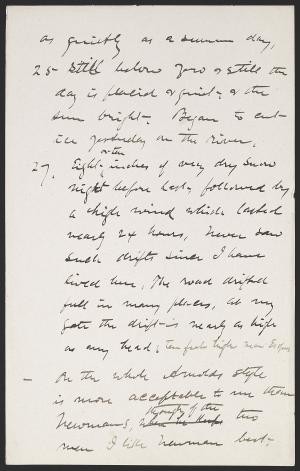 as quietly as a summer day,
25 Still below zero & still the
day is placid & quiet & the
sun bright. Began to cut
ice yesterday on the River.
27. Eight inches of very dry snow
night before last, followed by
a high wind which lasted
nearly 24 hours, never saw
such drifts since I have
lived here. The road drifted
full in many places, at my
gate the drift is nearly as high
as my head; ten feet high near
— On the whole Arnolds style
is more acceptable to me than
Newmans, thought of the two
men I like Newman best.